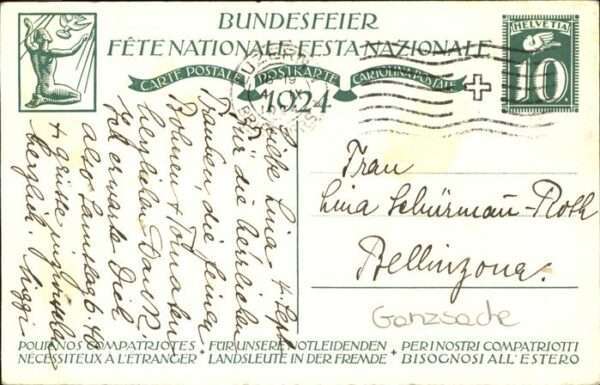 BUNDESFEIER
FÊTE NATIONALE-FESTA NAZIONALE
CARTE POSTALE POSTKARTE CARTOLINA POSTALE
1924
HELVETIA
10
LUZERN
Liebe Lina 4 Sept
Für die herrlichen
Trauben, die feinen
Bohnen & Tomaten
herzlichen Dank!
Ich erwarte Dich
also Samstag
& grüsse
herzlich.
Frau
Lina Schürmann-Roth
Bellinzona.
Ganzsache
POUR NOS COMPATRIOTES + FÜR UNSERE NOTLEIDENDEN + PER I NOSTRI COMPATRIOTTI
NÉCESSITEUX À L'ÉTRANGER LANDSLEUTE IN DER FREMDE BISOGNOSI ALL'ESTERO